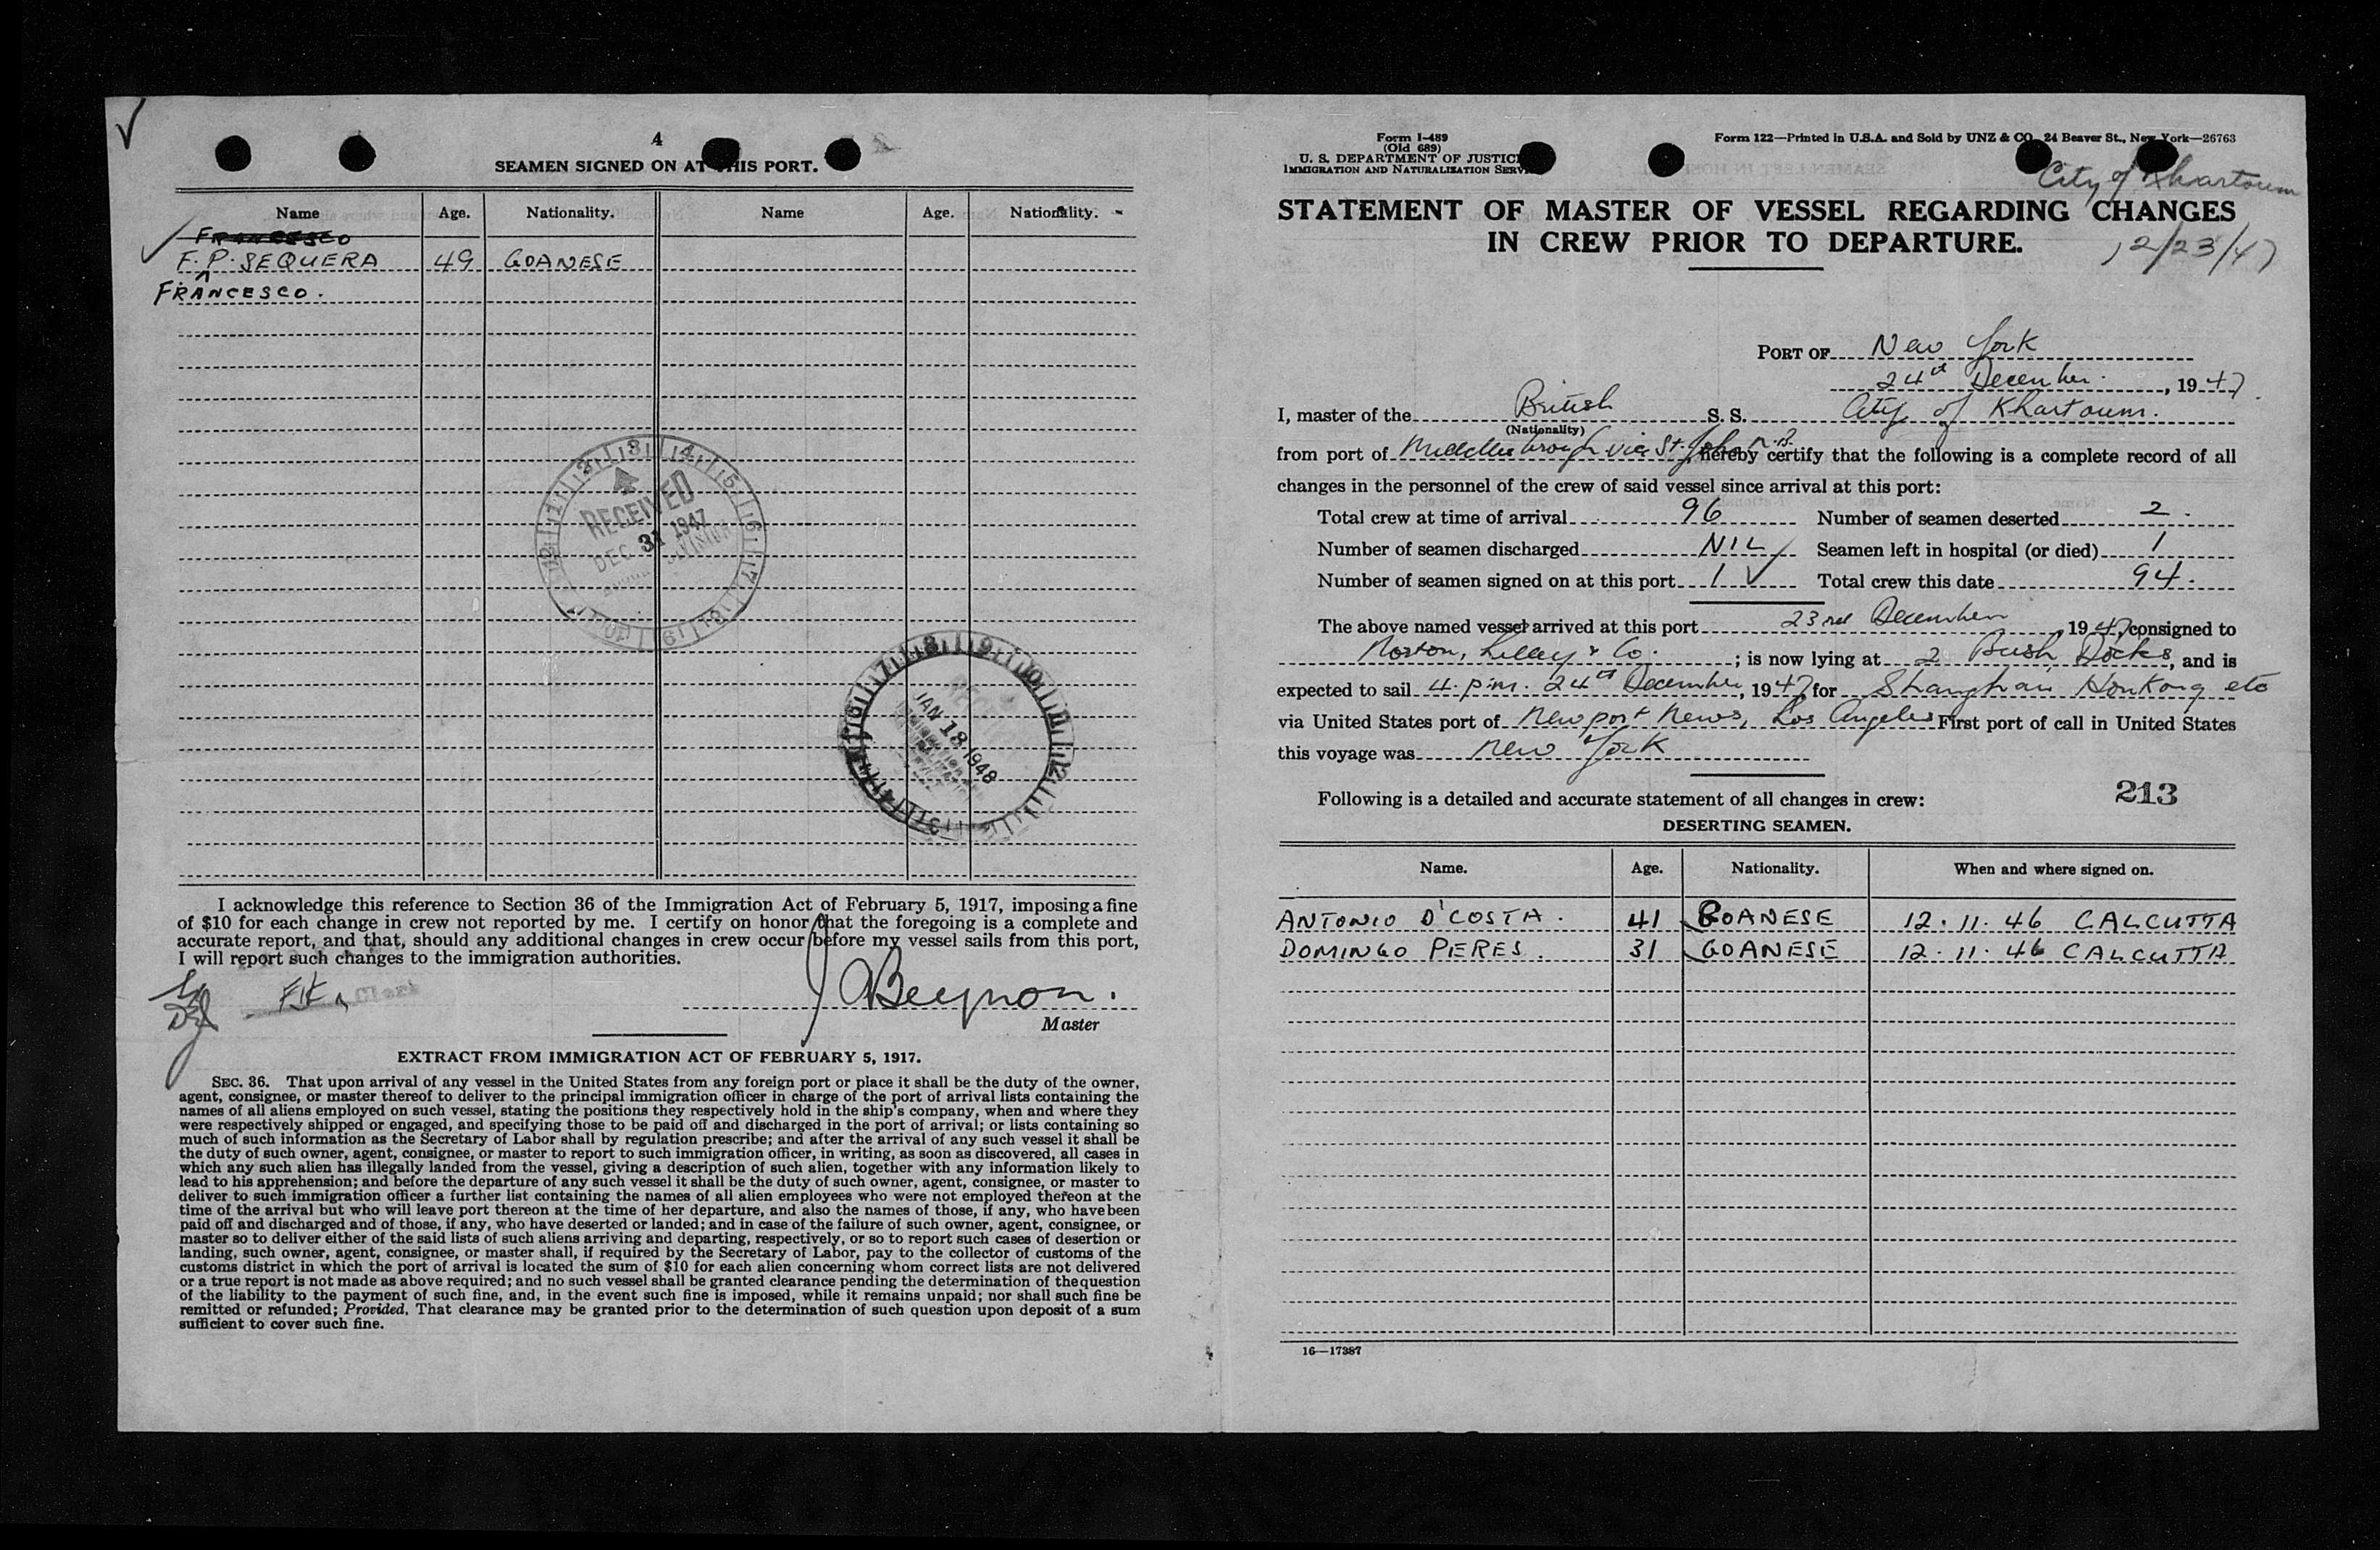 4
SEAMEN SIGNED ON AT THIS PORT.
Name Age. Nationality. Name Age. Nationality.
Francesco
F. P. SEQUERA 49 GOANESE
FRANCESCO.
RECEIVED
DEC 31 1947
JAN 18 1948
I acknowledge this reference to Section 36 of the Immigration Act of February 5, 1917, imposing a fine
of $10 for each change in crew not reported by me. I certify on honor that the foregoing is a complete and
accurate report, and that, should any additional changes in crew occur before my vessel sails from this port,
I will report such changes to the immigration authorities.
J A Beynon.
Master
EXTRACT FROM IMMIGRATION ACT OF FEBRUARY 5, 1917.
SEC. 36. That upon arrival of any vessel in the United States from any foreign port or place it shall be the duty of the owner,
agent, consignee, or master thereof to deliver to the principal immigration officer in charge of the port of arrival lists containing the
names of all aliens employed on such vessel, stating the positions they respectively hold in the ship's company, when and where they
were respectively shipped or engaged, and specifying those to be paid off and discharged in the port of arrival; or lists containing so
much of such information as the Secretary of Labor shall by regulation prescribe; and after the arrival of any such vessel it shall be
the duty of such owner, agent, consignee, or master to report to such immigration officer, in writing, as soon as discovered, all cases in
which any such alien has illegally landed from the vessel, giving a description of such alien, together with any information likely to
lead to his apprehension; and before the departure of any such vessel it shall be the duty of such owner, agent, consignee, or master to
deliver to such immigration officer a further list containing the names of all alien employees who were not employed thereon at the
time of the arrival but who will leave port thereon at the time of her departure, and also the names of those, if any, who have been
paid off and discharged and of those, if any, who have deserted or landed; and in case of the failure of such owner, agent, consignee, or
master so to deliver either of the said lists of such aliens arriving and departing, respectively, or so to report such cases of desertion or
landing, such owner, agent, consignee, or master shall, if required by the Secretary of Labor, pay to the collector of customs of the
customs district in which the port of arrival is located the sum of $10 for each alien concerning whom correct lists are not delivered
or a true report is not made as above required; and no such vessel shall be granted clearance pending the determination of the question
of the liability to the payment of such fine, and, in the event such fine is imposed, while it remains unpaid; nor shall such fine be
remitted or refunded; Provided, That clearance may be granted prior to the determination of such question upon deposit of a sum
sufficient to cover such fine.
Form I-489
(Old 689)
U. S. DEPARTMENT OF JUSTICE
IMMIGRATION AND NATURALIZATION SERVICE
Form 122—Printed in U.S.A. and Sold by UNZ & CO., 24 Beaver St., New York—26763
City of Khartoum
STATEMENT OF MASTER OF VESSEL REGARDING CHANGES
IN CREW PRIOR TO DEPARTURE.
12/23/47
PORT OF New York
24th December, 1947
I, master of the British S. S. City of Khartoum.
(Nationality)
from port of Middlesbrough via St. John N.B. hereby certify that the following is a complete record of all
changes in the personnel of the crew of said vessel since arrival at this port:
Total crew at time of arrival 96 Number of seamen deserted 2.
Number of seamen discharged NIL Seamen left in hospital (or died) 1
Number of seamen signed on at this port 1 Total crew this date 94.
The above named vessel arrived at this port 23rd December, 1947, consigned to
Norton, Lilley & Co.; is now lying at 2 Bush Docks, and is
expected to sail 4. p.m. 24th December, 1947 for Shanghai Honkong etc
via United States port of Newport News, Los Angeles First port of call in United States
this voyage was New York
Following is a detailed and accurate statement of all changes in crew:
213
DESERTING SEAMEN.
Name. Age. Nationality. When and where signed on.
ANTONIO D'COSTA. 41 GOANESE 12.11.46 CALCUTTA
DOMINGO PERES. 31 GOANESE 12.11.46 CALCUTTA
16—17387